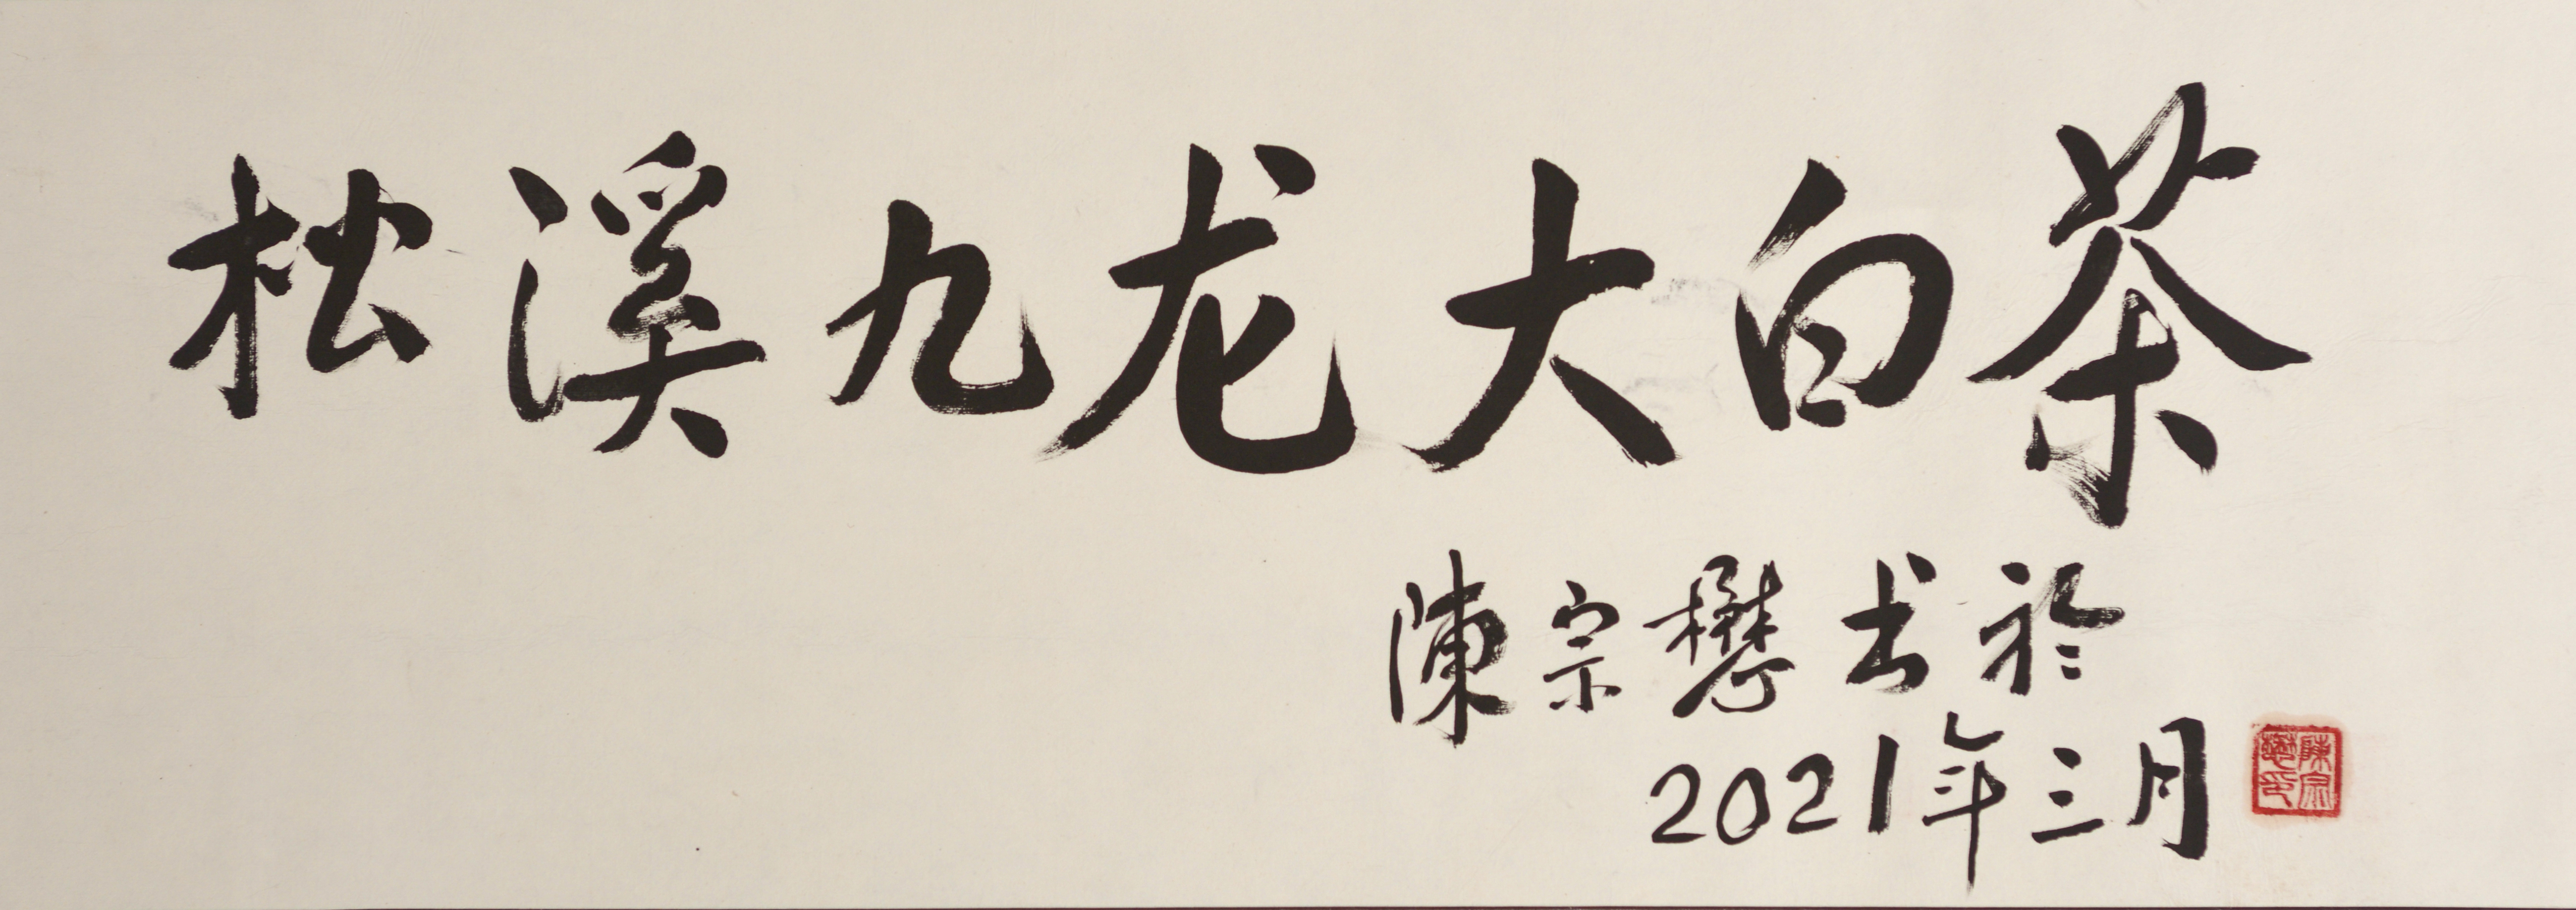 松溪九龙大白茶
陳宗懋书於
2021年三月
陳宗懋印